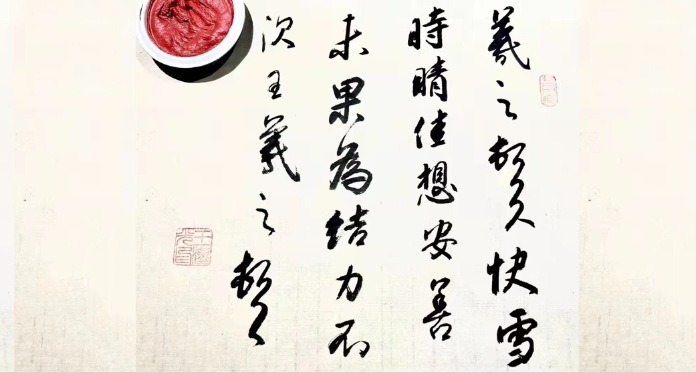 羲之頓首快雪
時晴佳想安善
未果為結力不
次王羲之頓首